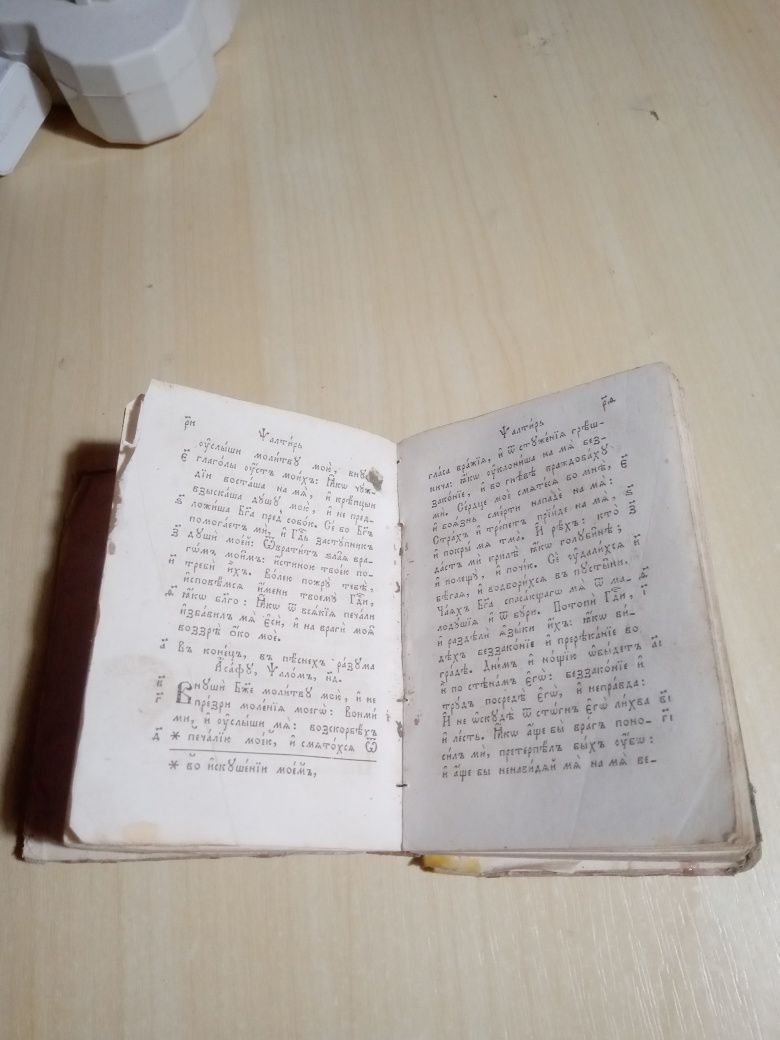 р҃и
Ѱалти́рь
ᲂу҆слы́ши моли́твꙋ мою̀, внꙋшѝ
є҃ глаго́лы ᲂу҆́стъ мои́хъ: Ꙗ҆́кѡ чꙋж-
дїи воста́ша на мѧ̀, и҆ крѣ́пцыи
взыска́ша дꙋ́шꙋ мою̀, и҆ не пред-
ѕ҃ ложи́ша Бг҃а пред̾ собо́ю. Се́ бо Бг҃ъ
помога́етъ мѝ, и҆ Гд҇ь застꙋ́пникъ
з҃ дꙋшѝ мое́й: Ѿврати́тъ ѕла̑ѧ вра-
гѡ́мъ мои̑мъ: и҆́стиною твое́ю по-
и҃ требѝ и҆̀хъ. Во́лею пожрꙋ̀ тебѣ̀,
и҆сповѣ́мсѧ и҆́мени твоемꙋ̀ Гд҇и,
ѳ҃ ꙗ҆́кѡ бл҃го: Ꙗ҆́кѡ ѿ всѧ́кїѧ печа́ли
и҆зба́вилъ мѧ̀ є҆сѝ, и҆ на врагѝ моѧ̑
воззрѣ̀ ѻ҆́ко моѐ.
а҃ Въ коне́цъ, въ пѣ́снехъ ра́зꙋма
А҆са́фꙋ, Ѱало́мъ, н҃д.
в҃ Внꙋшѝ Бж҃е моли́твꙋ мою̀, и҆ не
г҃ пре́зри моле́нїѧ моегѡ̀: Вонми́
ми, и҆ ᲂу҆слы́ши мѧ̀: возскорбѣ́хъ
д҃ * печа́лїю мое́ю, и҆ смѧто́хсѧ Ѿ
* во и҆скꙋше́нїи мое́мъ,
р҃ѳ
Ѱалти́рь
гла́са вра́жїѧ, и҆ ѿ стꙋже́нїѧ грѣ́ш-
нича: ꙗ҆́кѡ ᲂу҆клони́ша на мѧ̀ без-
зако́нїе, и҆ во гнѣ́вѣ враждова́хꙋ
є҃ ми. Се́рдце моѐ смѧте́сѧ во мнѣ̀,
и҆ боѧ́знь сме́рти нападѐ на мѧ̀:
ѕ҃ Стра́хъ и҆ тре́петъ прїи́де на мѧ̀,
з҃ и҆ покры́ мѧ тма̀. И҆ рѣ́хъ: кто̀
да́стъ мѝ крилѣ̀ ꙗ҆́кѡ голꙋби́нѣ;
и҆ полещꙋ̀, и҆ почі́ю. Сѐ ᲂу҆дали́хсѧ
бѣ́гаѧ, и҆ водвори́хсѧ въ пꙋсты́ни.
ѳ҃ Ча́ѧхъ Бг҃а спаса́ющагѡ мѧ̀ ѿ ма-
і҃ лодꙋ́шїѧ и҆ ѿ бꙋ́ри. Потопѝ Гд҇и,
и҆ раздѣлѝ ѧ҆зы́ки и҆́хъ: ꙗ҆́кѡ ви́-
дѣхъ беззако́нїе и҆ пререка́нїе во
а҃і гра́дѣ. Дні́мъ и҆ но́щїю ѡ҆бы́детъ
и҆̀ по стѣна́мъ є҆гѡ̀: беззако́нїе и҆
трꙋ́дъ посредѣ̀ є҆гѡ̀, и҆ непра́вда:
в҃і И҆ не ѡ҆скꙋдѣ̀ ѿ сто́гнъ є҆гѡ̀ ли́хва
г҃і и҆ ле́сть. Ꙗ҆́кѡ а҆́ще бы̀ вра́гъ поно-
си́лъ мѝ, претерпѣ́лъ бы́хъ ᲂу҆́бѡ:
и҆ а҆́ще бы ненави́дѧй мѧ̀ на мѧ̀ ве-